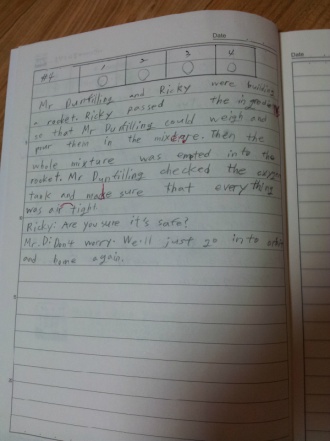 Date
#4. 1 2 3 4
Mr Duntilling and Ricky were building
a rocket. Ricky passed the
so that Mr Duntilling could weigh and
pour them in the Then the
whole mixture was into the
rocket. Mr Duntilling checked the
tank and make sure that every thing
was air tight.
Ricky: Are you sure it's safe?
Mr. D: Don't worry. We'll just go into
and home again.
Date